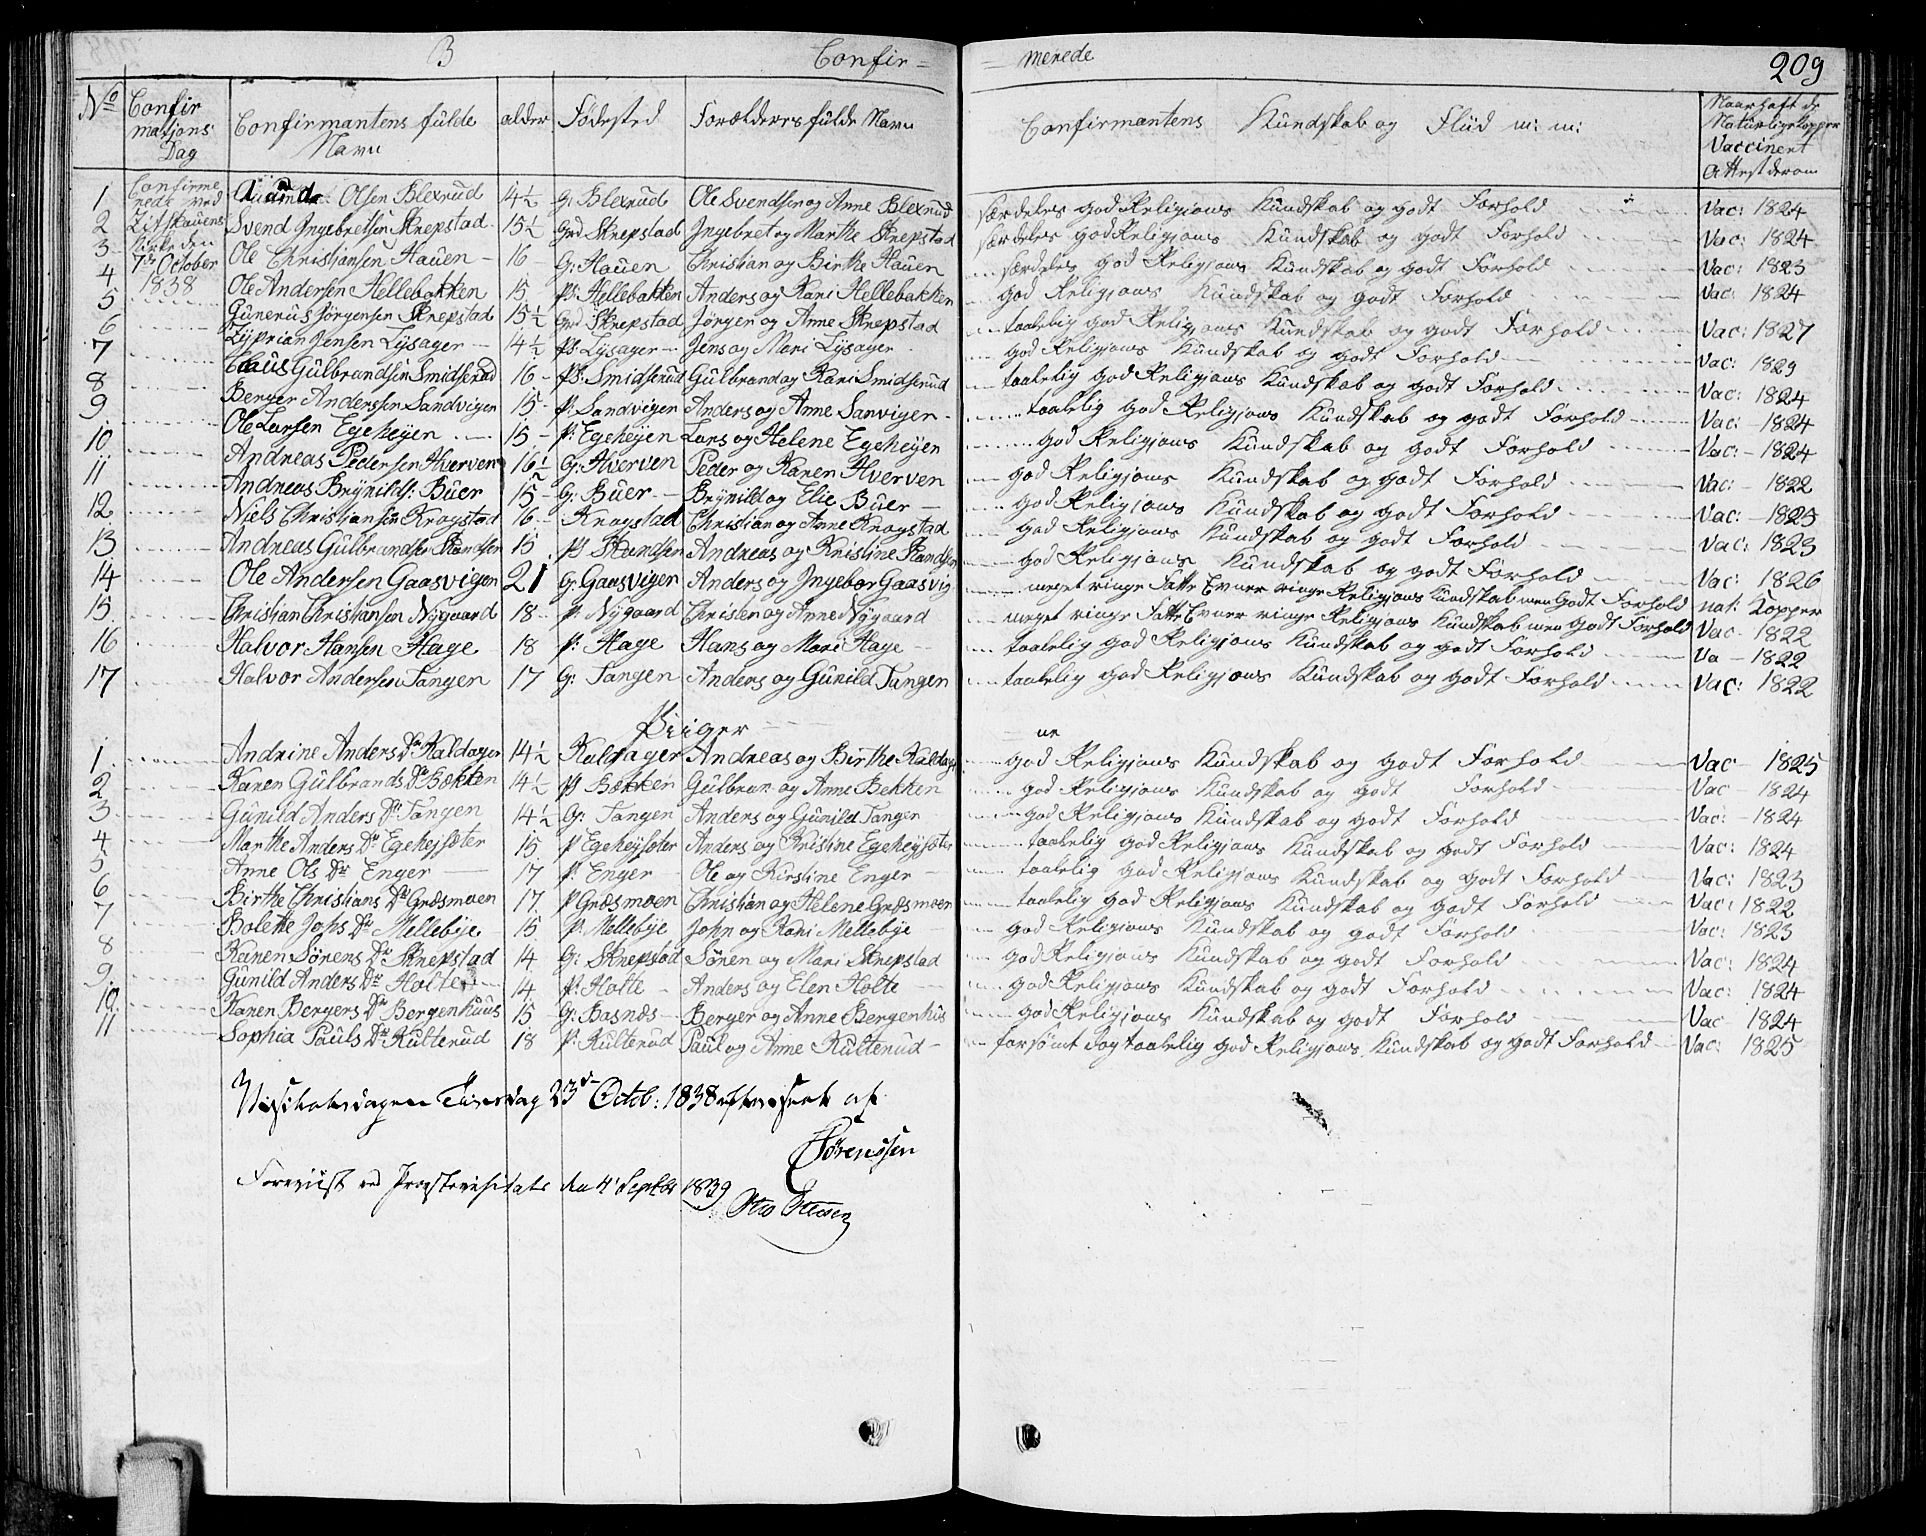 3 Confir= = merede 209
No Confirmatjons Dag Confirmantens fulde Navn alder Fødested Forældrers fulde Navn Confirmantens Kundskab og Fliid m: m: Naar haft de Naturlige Kopper Vaccinert Attest derom
Confirmerede ved Kirke den 7de October 1838
1 Olsen Blexrud 14½ G: Blexrud Ole Svendsen og Anne Blexrud særdeles god Religjons Kundskab og godt Forhold Vac: 1824
2 Svend Jngebretsen Skrepstad 15½ Grd Skrepstad Jngebret og Marthe Skrepstad særdeles god Religjons Kundskab og godt Forhold Vac: 1824
3 Ole Christjansen Hauen 16 G: Hauen Christian og Birthe Hauen særdeles god Religjons Kundskab og godt Forhold Vac: 1823
4 Ole Andersen Hellebakken 15 Ps: Hellebakken Anders og Kari Hellebakken god Religjons Kundskab og godt Forhold Vac: 1824
5 Gunerus Jørgensen Skrepstad 15½ Grd Skrepstad Jørgen og Anne Skrepstad taalelig god Religjons Kundskab og godt Forhold Vac: 1827
6 Zyprian Jensen Lysager 14½ Ps: Lysager Jens og Mari Lysager god Religjons Kundskab og godt Forhold Vac: 1829
7 Claus Gulbrandsen Smidserud 16 Ps: Smidserud Gulbrand og Kari Smidserud taalelig god Religjons Kundskab og godt Forhold Vac: 1824
8 Berger Anderssen Sandvigen 15 P: Sandvigen Anders og Anne Sanvigen taalelig god Religjons Kundskab og godt Forhold Vac: 1824
9 Ole Larsen Egeheyen 15 P: Egeheyen Lars og Helene Egeheyen god Religjons Kundskab og godt Forhold Vac: 1824
10 Andreas Pedersen Hverven 16½ G: Hverven Peder og Karen Hverven god Religjons Kundskab og godt Forhold Vac: 1822
11 Andreas Brynilds: Buer 15 G: Buer Brynild og Elie Buer god Religjons Kundskab og godt Forhold Vac: 1825
12 Niels Christjansen Krogstad 16 Krogstad Christian og Anne Krogstad god Religjons Kundskab og godt Forhold Vac: 1823
13 Andreas Gulbrandsen 15 Andreas og Kristine god Religjons Kundskab og godt Forhold Vac: 1826
14 Ole Andersen Gaasvigen 21 G: Gaasvigen Anders og Jngebor Gaasvig meget ringe Fatte Evner ringe Religjons Kundskab men Godt Forhold nat: Kopper
15 Christian Christiansen Nygaard 18 P: Nygaard Christen og Anne Nygaard meget ringe Fatte Evner ringe Religjons Kundskab men Godt Forhold Vac 1822
16 Halvor Hansen Hage 18 P: Hage Hans og Mari Hage taalelig god Religjons Kundskab og godt Forhold Va 1822
17 Halvor Andersen Tangen 17 G: Tangen Anders og Gunild Tangen taalelig god Religjons Kundskab og godt Forhold Vac: 1822
Piiger
1 Andrine Anders Dr Kaldager 14½ Kaldager Andreas og Birthe Kaldager god Religjons Kundskab og godt Forhold Vac 1825
2 Karen Gulbrands Dr Bækken 14½ P Bækken Gulbran og Anne Bekken god Religjons Kundskab og godt Forhold Vac 1824
3 Gunild Anders Dr Tangen 14½ G: Tangen Anders og Gunild Tangen god Religjons Kundskab og godt Forhold Vac: 1824
4 Marthe Anders Dr Egeheysæter 15 P Egeheysæter Anders og Kristine Egeheysæter taalelig god Religjons Kundskab og godt Forhold Vac: 1824
5 Anne Ols Dr Enger 17 P: Enger Ole og Kirstine Enger taalelig god Religjons Kundskab og godt Forhold Vac: 1823
6 Birthe Christians Dr Græsmoen 17 P Græsmoen Christian og Helene Græsmoen taalelig god Religjons Kundskab og godt Forhold Vac: 1822
7 Bolette Johs Dr Mellebye 15 P: Mellebye John og Kari Mellebye god Religjons Kundskab og godt Forhold Vac: 1823
8 Karen Sørens Dr Skrepstad 14 G: Skrepstad Sören og Mari Skrepstad god Religjons Kundskab og godt Forhold Vac: 1824
9 Gunild Anders Dr Holte 14 P: Holte Anders og Elen Holte god Religjons Kundskab og godt Forhold Vac: 1824
10 Karen Bergers Dr Bergenhuus 15 G: Basnæs Berger og Anne Bergenhus god Religjons Kundskab og godt Forhold Vac 1824
11 Sophia Pauls Dr Kulterud 18 P: Kulterud Paul og Anne Kulterud forsömt dog taalelig god Religjons Kundskab og godt Forhold Vac: 1825
Visitatsdagen Tiirsdag 23de Octob: 1838 efterseet af
Sørenssen
Foreviist ved Provstevisitats den 4 Septbr 1839